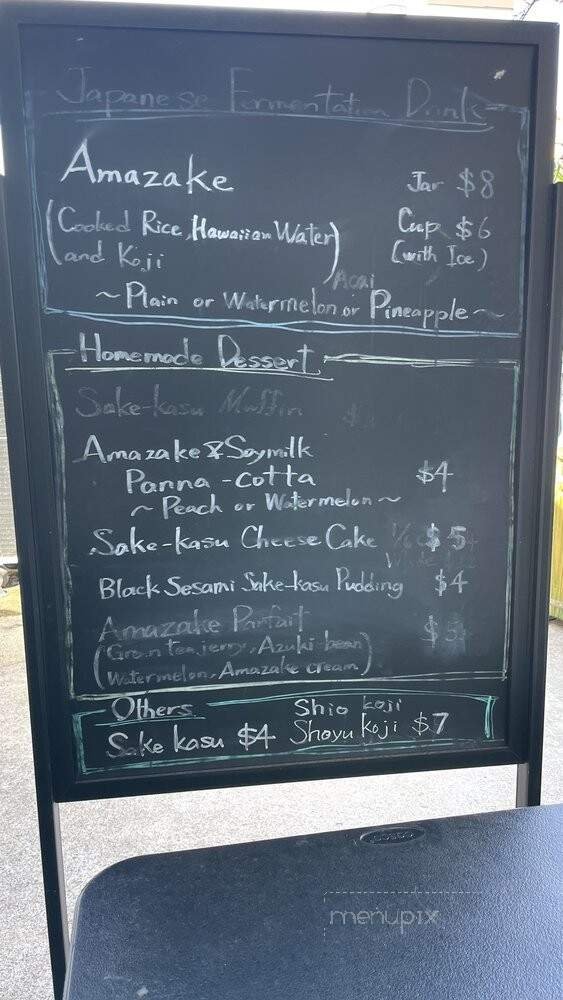 Japanese Fermentation Drink
Amazake Jar $8
(Cooked Rice, Hawaiian Water Cup $6
and Koji) (with Ice)
Acai
~Plain or Watermelon or Pineapple~
Homemade Dessert
Sake-kasu Muffin
Amazake & Soymilk
Panna-cotta $4
~ Peach or Watermelon ~
Sake-kasu Cheese Cake $5
Black Sesami Sake-kasu Pudding $4
Amazake Parfait
(Green tea jerry, Azuki-bean
Watermelon, Amazake cream)
Others Shio koji
Sake kasu $4 Shoyu koji $7
COSCO
menupix